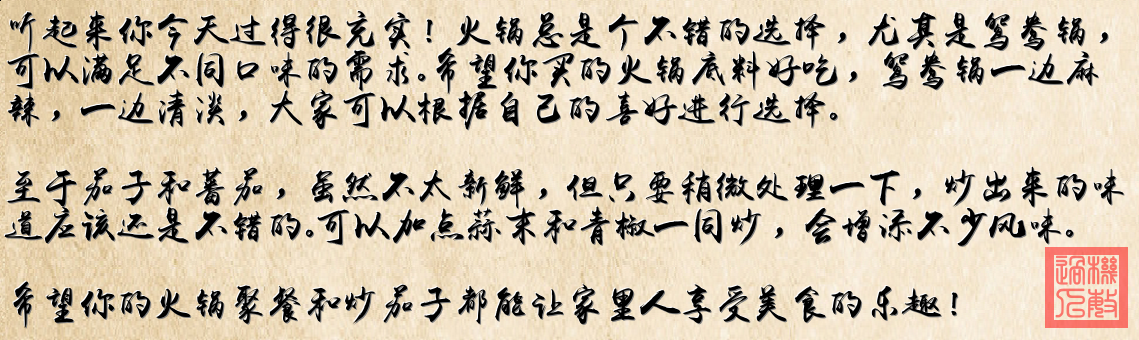 听起来你今天过得很充实！火锅总是个不错的选择，尤其是鸳鸯锅，
可以满足不同口味的需求。希望你买的火锅底料好吃，鸳鸯锅一边麻
辣，一边清淡，大家可以根据自己的喜好进行选择。
至于茄子和蕃茄，虽然不太新鲜，但只要稍微处理一下，炒出来的味
道应该还是不错的。可以加点蒜末和青椒一同炒，会增添不少风味。
希望你的火锅聚餐和炒茄子都能让家里人享受美食的乐趣！